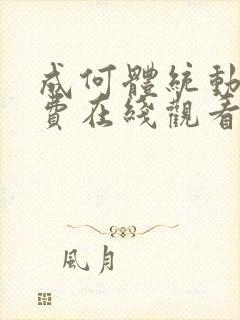 成何體統動
費在綫觀看
風月